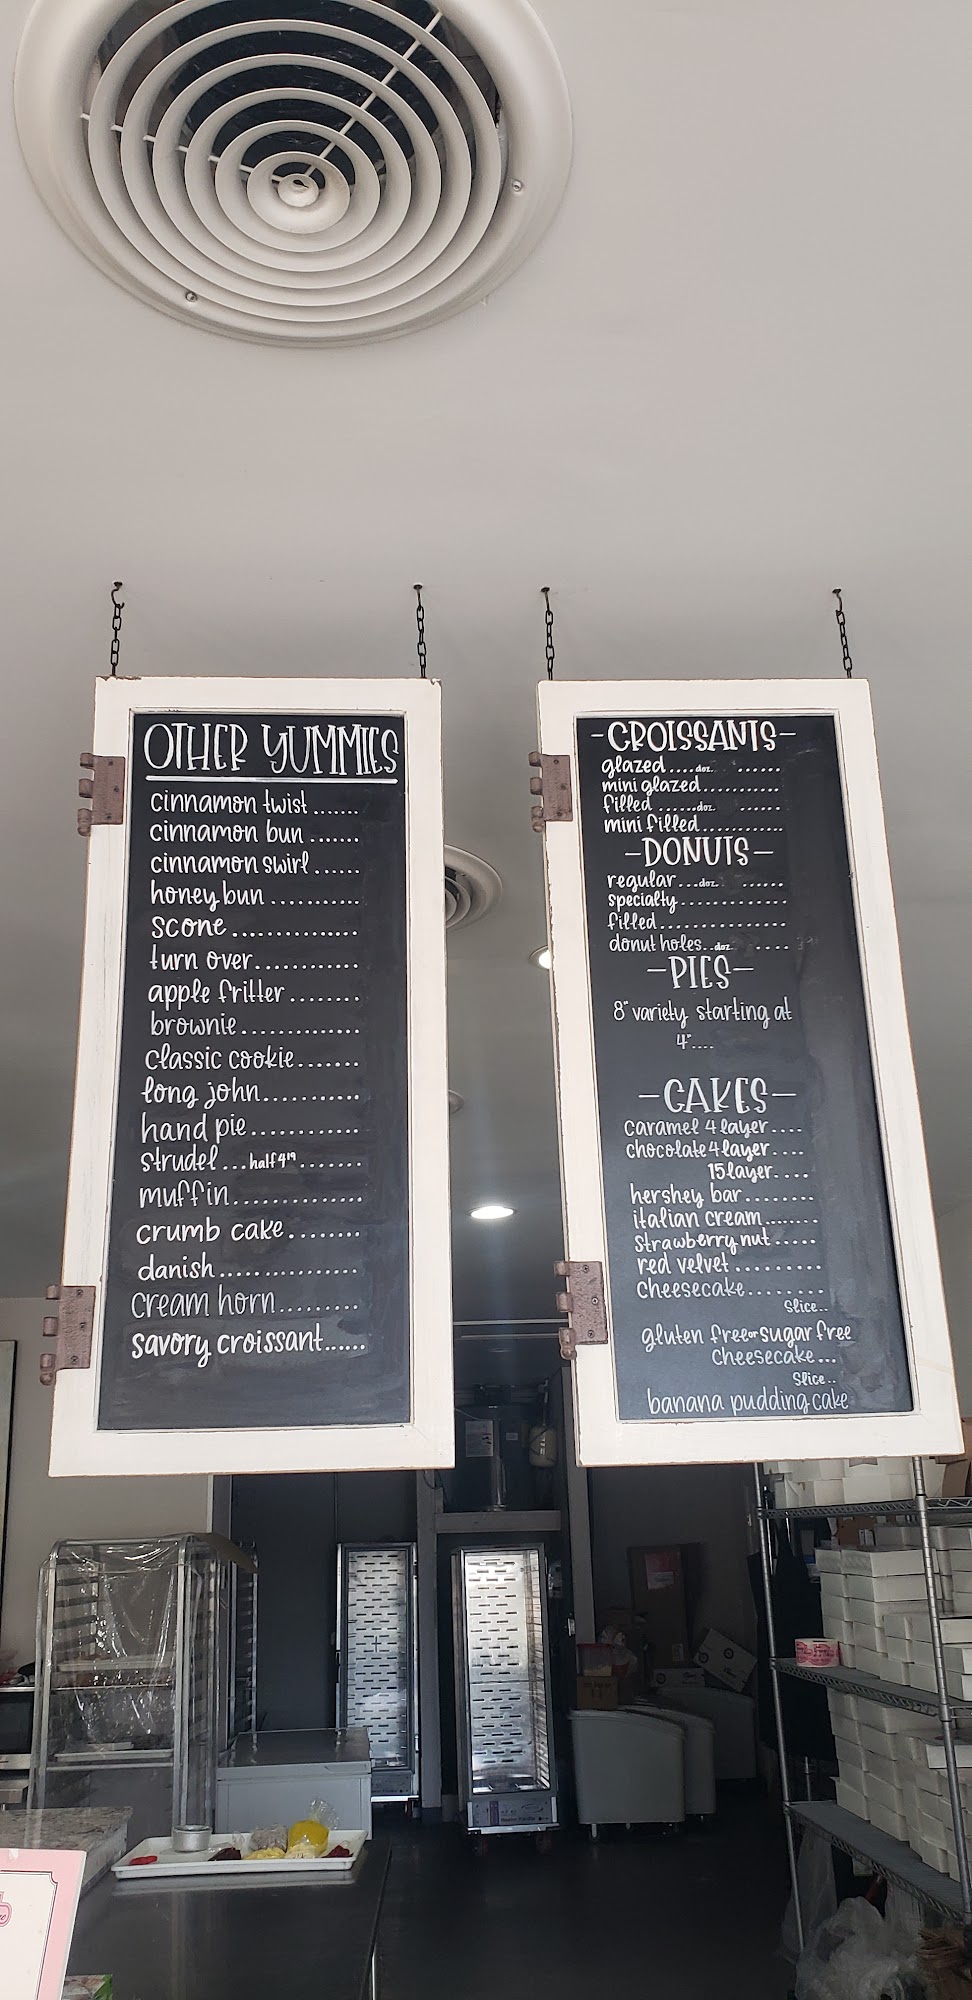 OTHER YUMMIES
cinnamon twist.......
cinnamon bun.......
cinnamon swirl......
honey bun...........
scone...............
turn over............
apple fritter........
brownie..............
classic cookie.......
long john...........
hand pie............
strudel...half 4"........
muffin...............
crumb cake........
danish................
cream horn.........
savory croissant......
-CROISSANTS-
glazed....doz. ......
mini glazed...........
filled......doz. ......
mini filled............
-DONUTS-
regular...doz. ......
specialty..............
filled.................
donut holes..doz. .....
-PIES-
8" variety starting at
4"....
-CAKES-
caramel 4 layer....
chocolate 4 layer....
15 layer....
hershey bar........
italian cream........
strawberry nut.....
red velvet..........
cheesecake........
slice..
gluten free or sugar free
cheesecake...
slice..
banana pudding cake